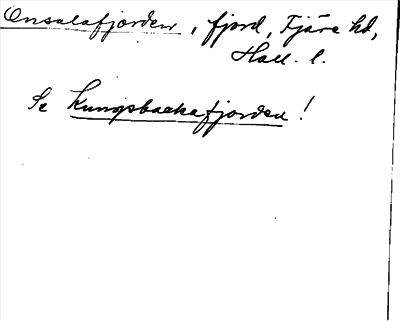 Onsalafjorden, fjord, Fjäre hd,
Hall. l.
Se Kungsbackafjorden!